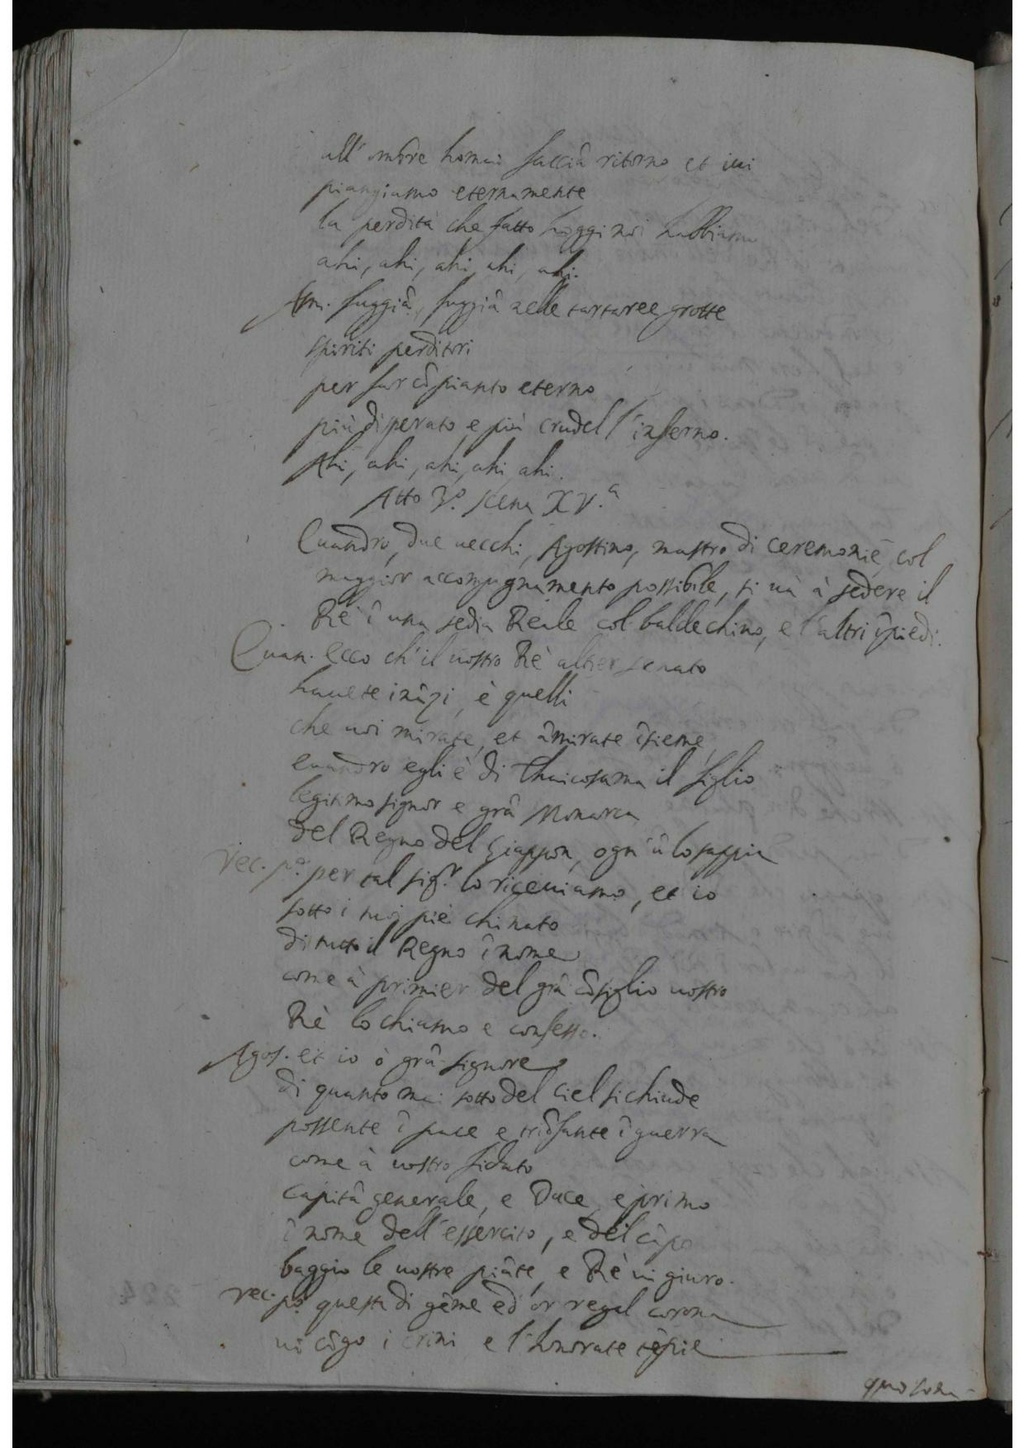 all'ombre homai facciã ritorno et ivi
piangiamo eternamente
la perdita che fatto hoggi noi habbiamo
ahi, ahi, ahi, ahi, ahi.
Am. fuggiã, fuggiã alle tartaree grotte
spiriti perditori
per far cõ pianto eterno
più disperato, e più crudel l'inferno.
Ahi, ahi, ahi, ahi, ahi.
Atto V.º scena XV.ª
Evandro, due vecchi, Agostino, mastro di ceremonie, col
maggior accompagnamento possibile, si và à sedere il
Rè ĩ una sedia Reale col baldechino, e l'altri ĩ piedi.
Evan. Ecco ch'il vostro Rè altier senato
havete inãzi, è quelli
che voi mirate, et ãmirate ĩsieme
evandro egli è di Thaicosama il figlio
legitimo signor e grã Monarca
del Regno del Giappon, ogn'ũ lo sappia
vec. p.º per tal sig.r lo riceviamo, et io
sotto i tuoi piè chinato
di tutto il Regno ĩ nome
come à primier del grã cõsiglio vostro
Rè lo chiamo e confesso.
Agos. et io ò grã signore
di quanto mai sotto del ciel si chiude
possente ĩ pace e triõfante ĩ guerra
come à vostro fidato
capitã generale, e Duce, e primo
ĩ nome dell'essercito, e del cãpo
baggio le vostre piãte, e Rè vi giuro.
vec. pº questa di gẽme ed'or regal corona
vi cĩgo i crini e l'honorate tẽpie